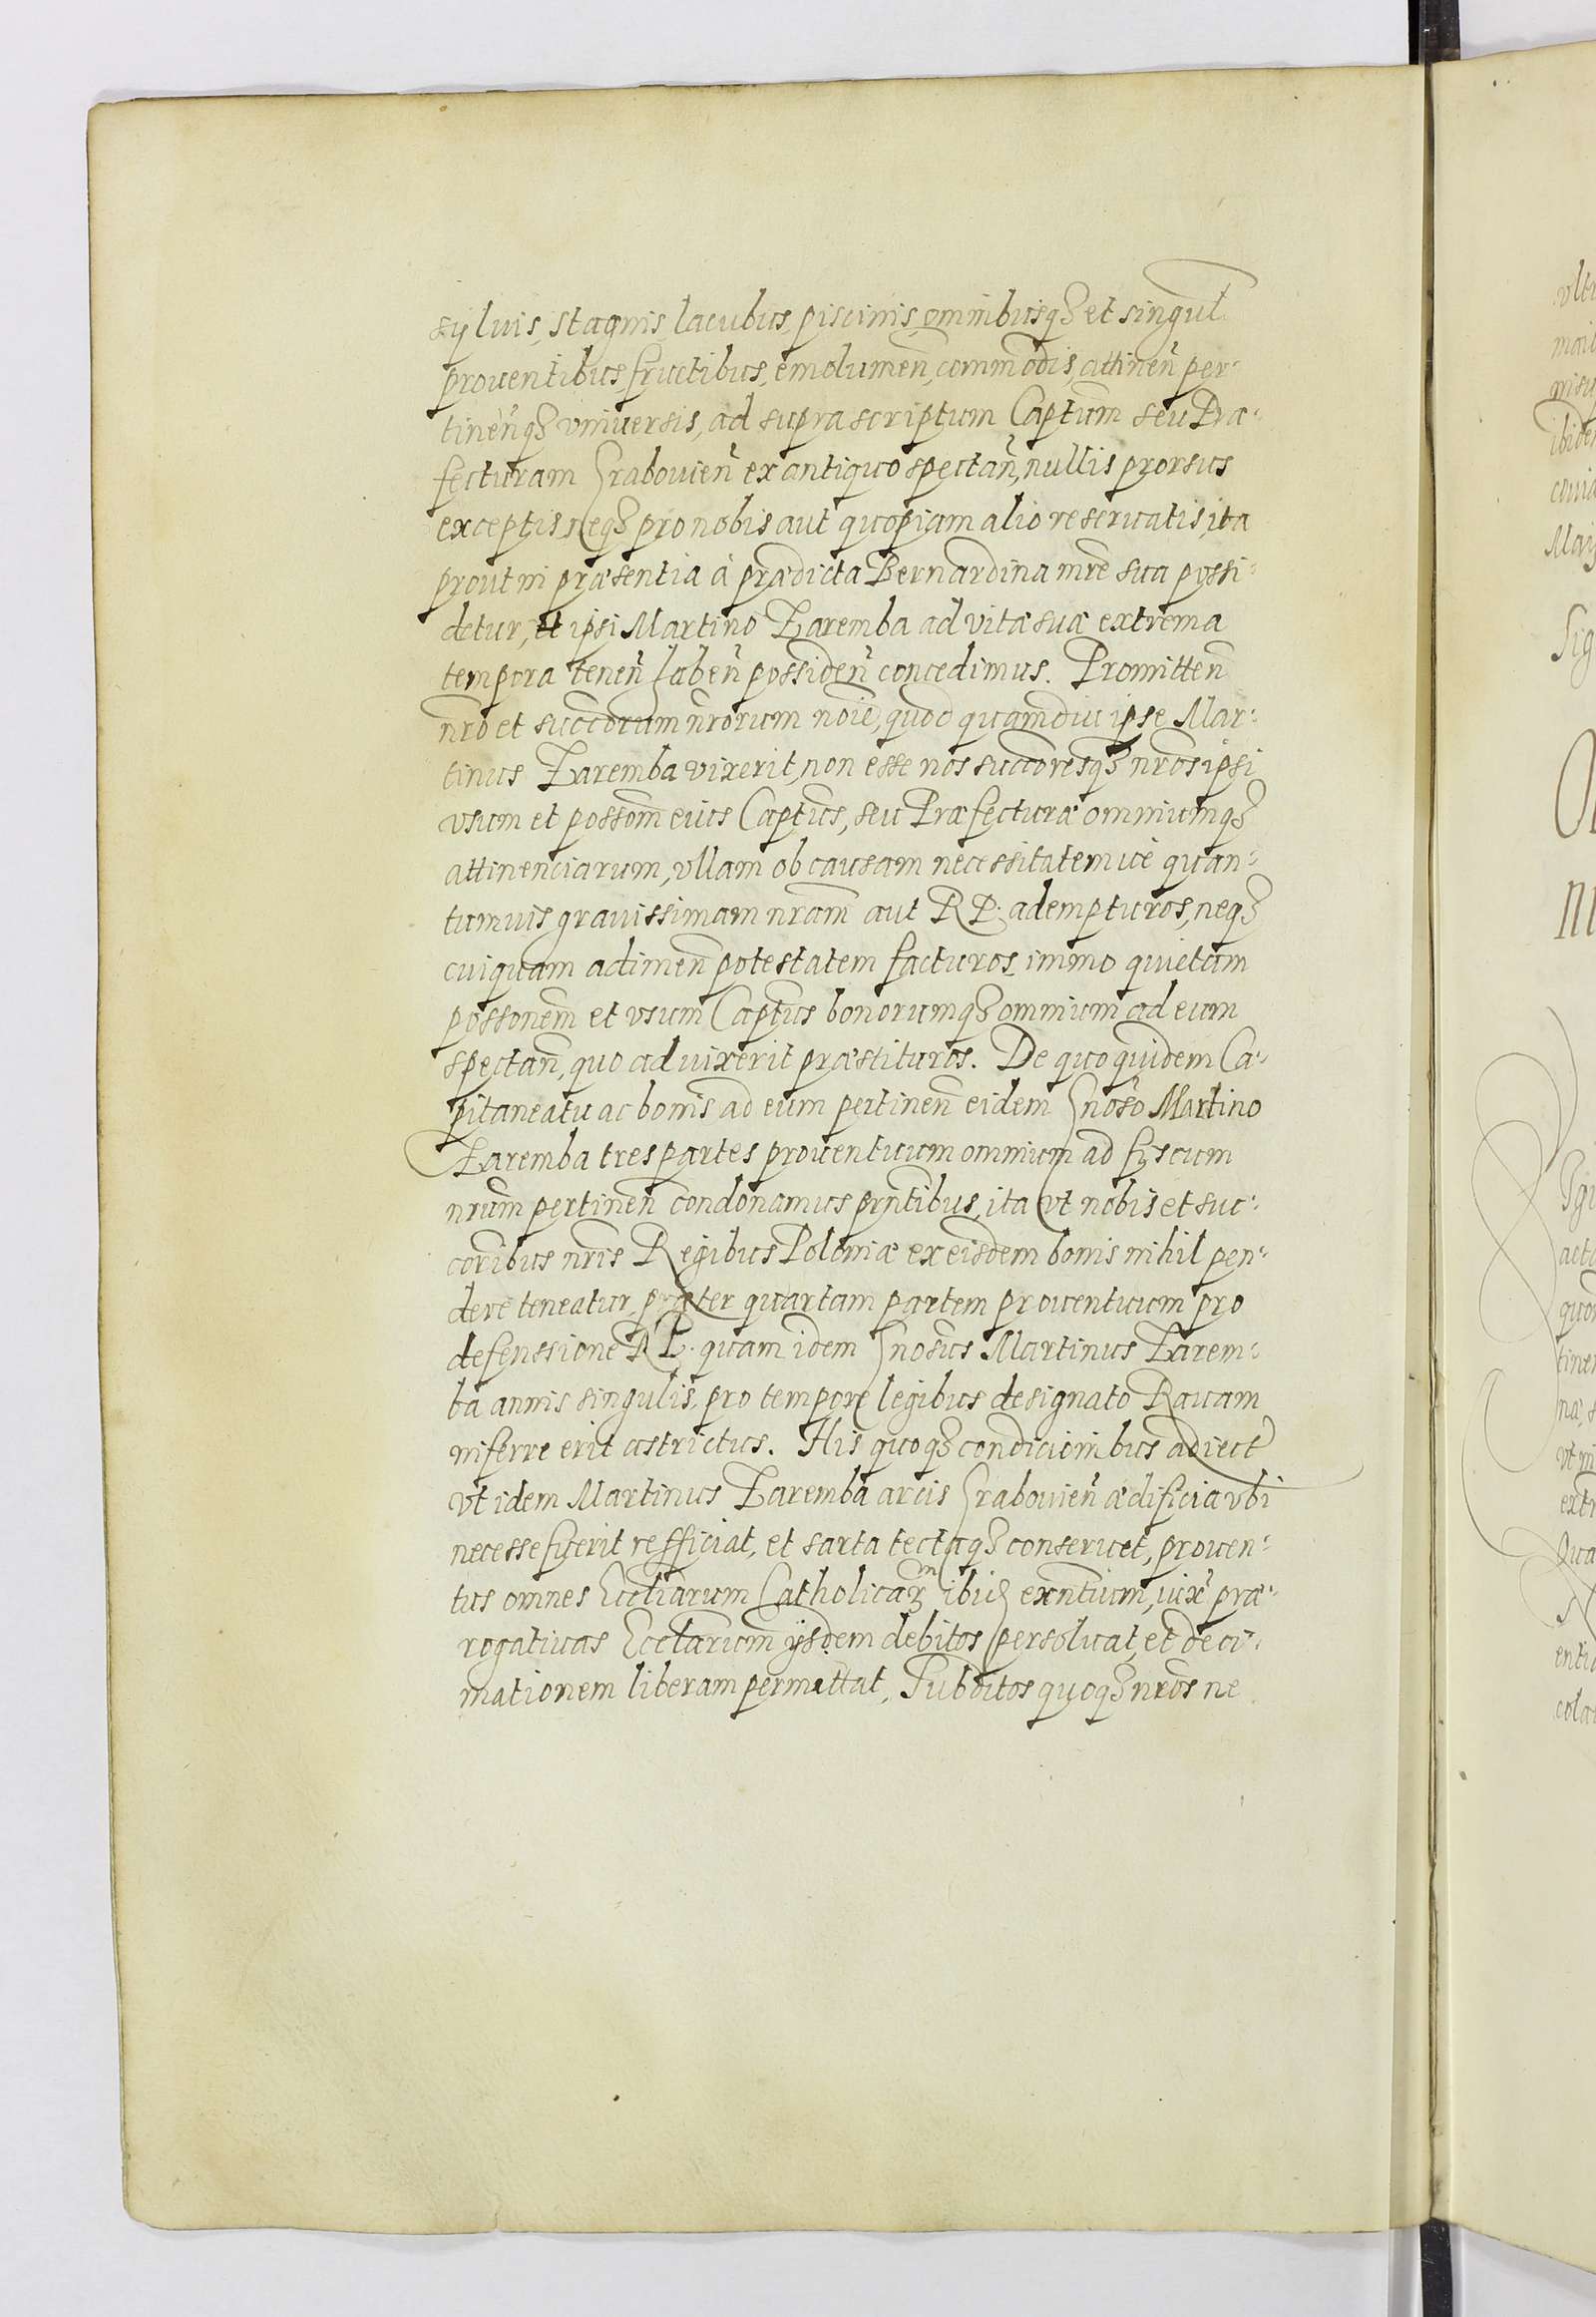 syluis, stagnis, lacubus, piscinis, omnibusq₃ et singul
prouentibus, fructibus, emolumen̄, commodis, attinen̄ per:
tinen̄q₃ vniuersis, ad suprascriptum Captum̄ seu Præ:
fecturam Grabouien̄ ex antiquo spectan̄, nullis prorsus
exceptis, neq₃ pro nobis aut quopiam alio reseruatis, ita
prout in præsentia à prædicta Bernardina mr̄e sua possi:
detur, et ipsi Martino Zaremba ad vitæ suæ extrema
tempora tenen̄ haben̄ possiden̄ concedimus. Promitten̄
nr̄o et succorum̄ nr̄orum noīe, quod quamdiu ipse Mar:
tinus Zaremba vixerit, non esse nos succoresq₃ nr̄os ipsi
vsum et possom̄ eius Captus̄, seu Præfecturæ omniumq₃
attinenciarum, vllam ob causam necessitatemuè quan:
tumuis grauissimam nr̄am aut R P. adempturos, neq₃
cuiquam adimen̄ potestatem facturos, immo quietam
possonem̄ et vsum Captus̄ bonorumq₃ omnium ad eum
spectan̄, quo ad uixerit præstituros. De quo quidem Ca:
pitaneatu ac bonis ad eum pertinen̄ eidem Gnoso Martino
Zaremba tres partes prouentuum omnium ad fyscum
nr̄um pertinen̄ condonamus pn̄tibus, ita vt nobis et suc:
coribus nr̄is Regibus Poloniæ ex eisdem bonis nihil pen:
dere teneatur, præter quartam partem prouentuum pro
defenssione R P. quam idem Gnosus Martinus Zarem:
ba annis singulis, pro tempore legibus designato Rauam
inferre erit astrictus. His quoq₃ condicionibus adiect
vt idem Martinus Zaremba arcis Grabouien̄ ædificia vbi
necesse fuerit refficiat, et sarta tectaq₃ conseruet, prouen:
tus omnes Eccliarum Catholicar ibid exn̄tium, iux præ:
rogatiuas Ecclarum ijsdem debitos persoluat, et deci:
mationem liberam permittat, Subditos quoq₃ nr̄os ne